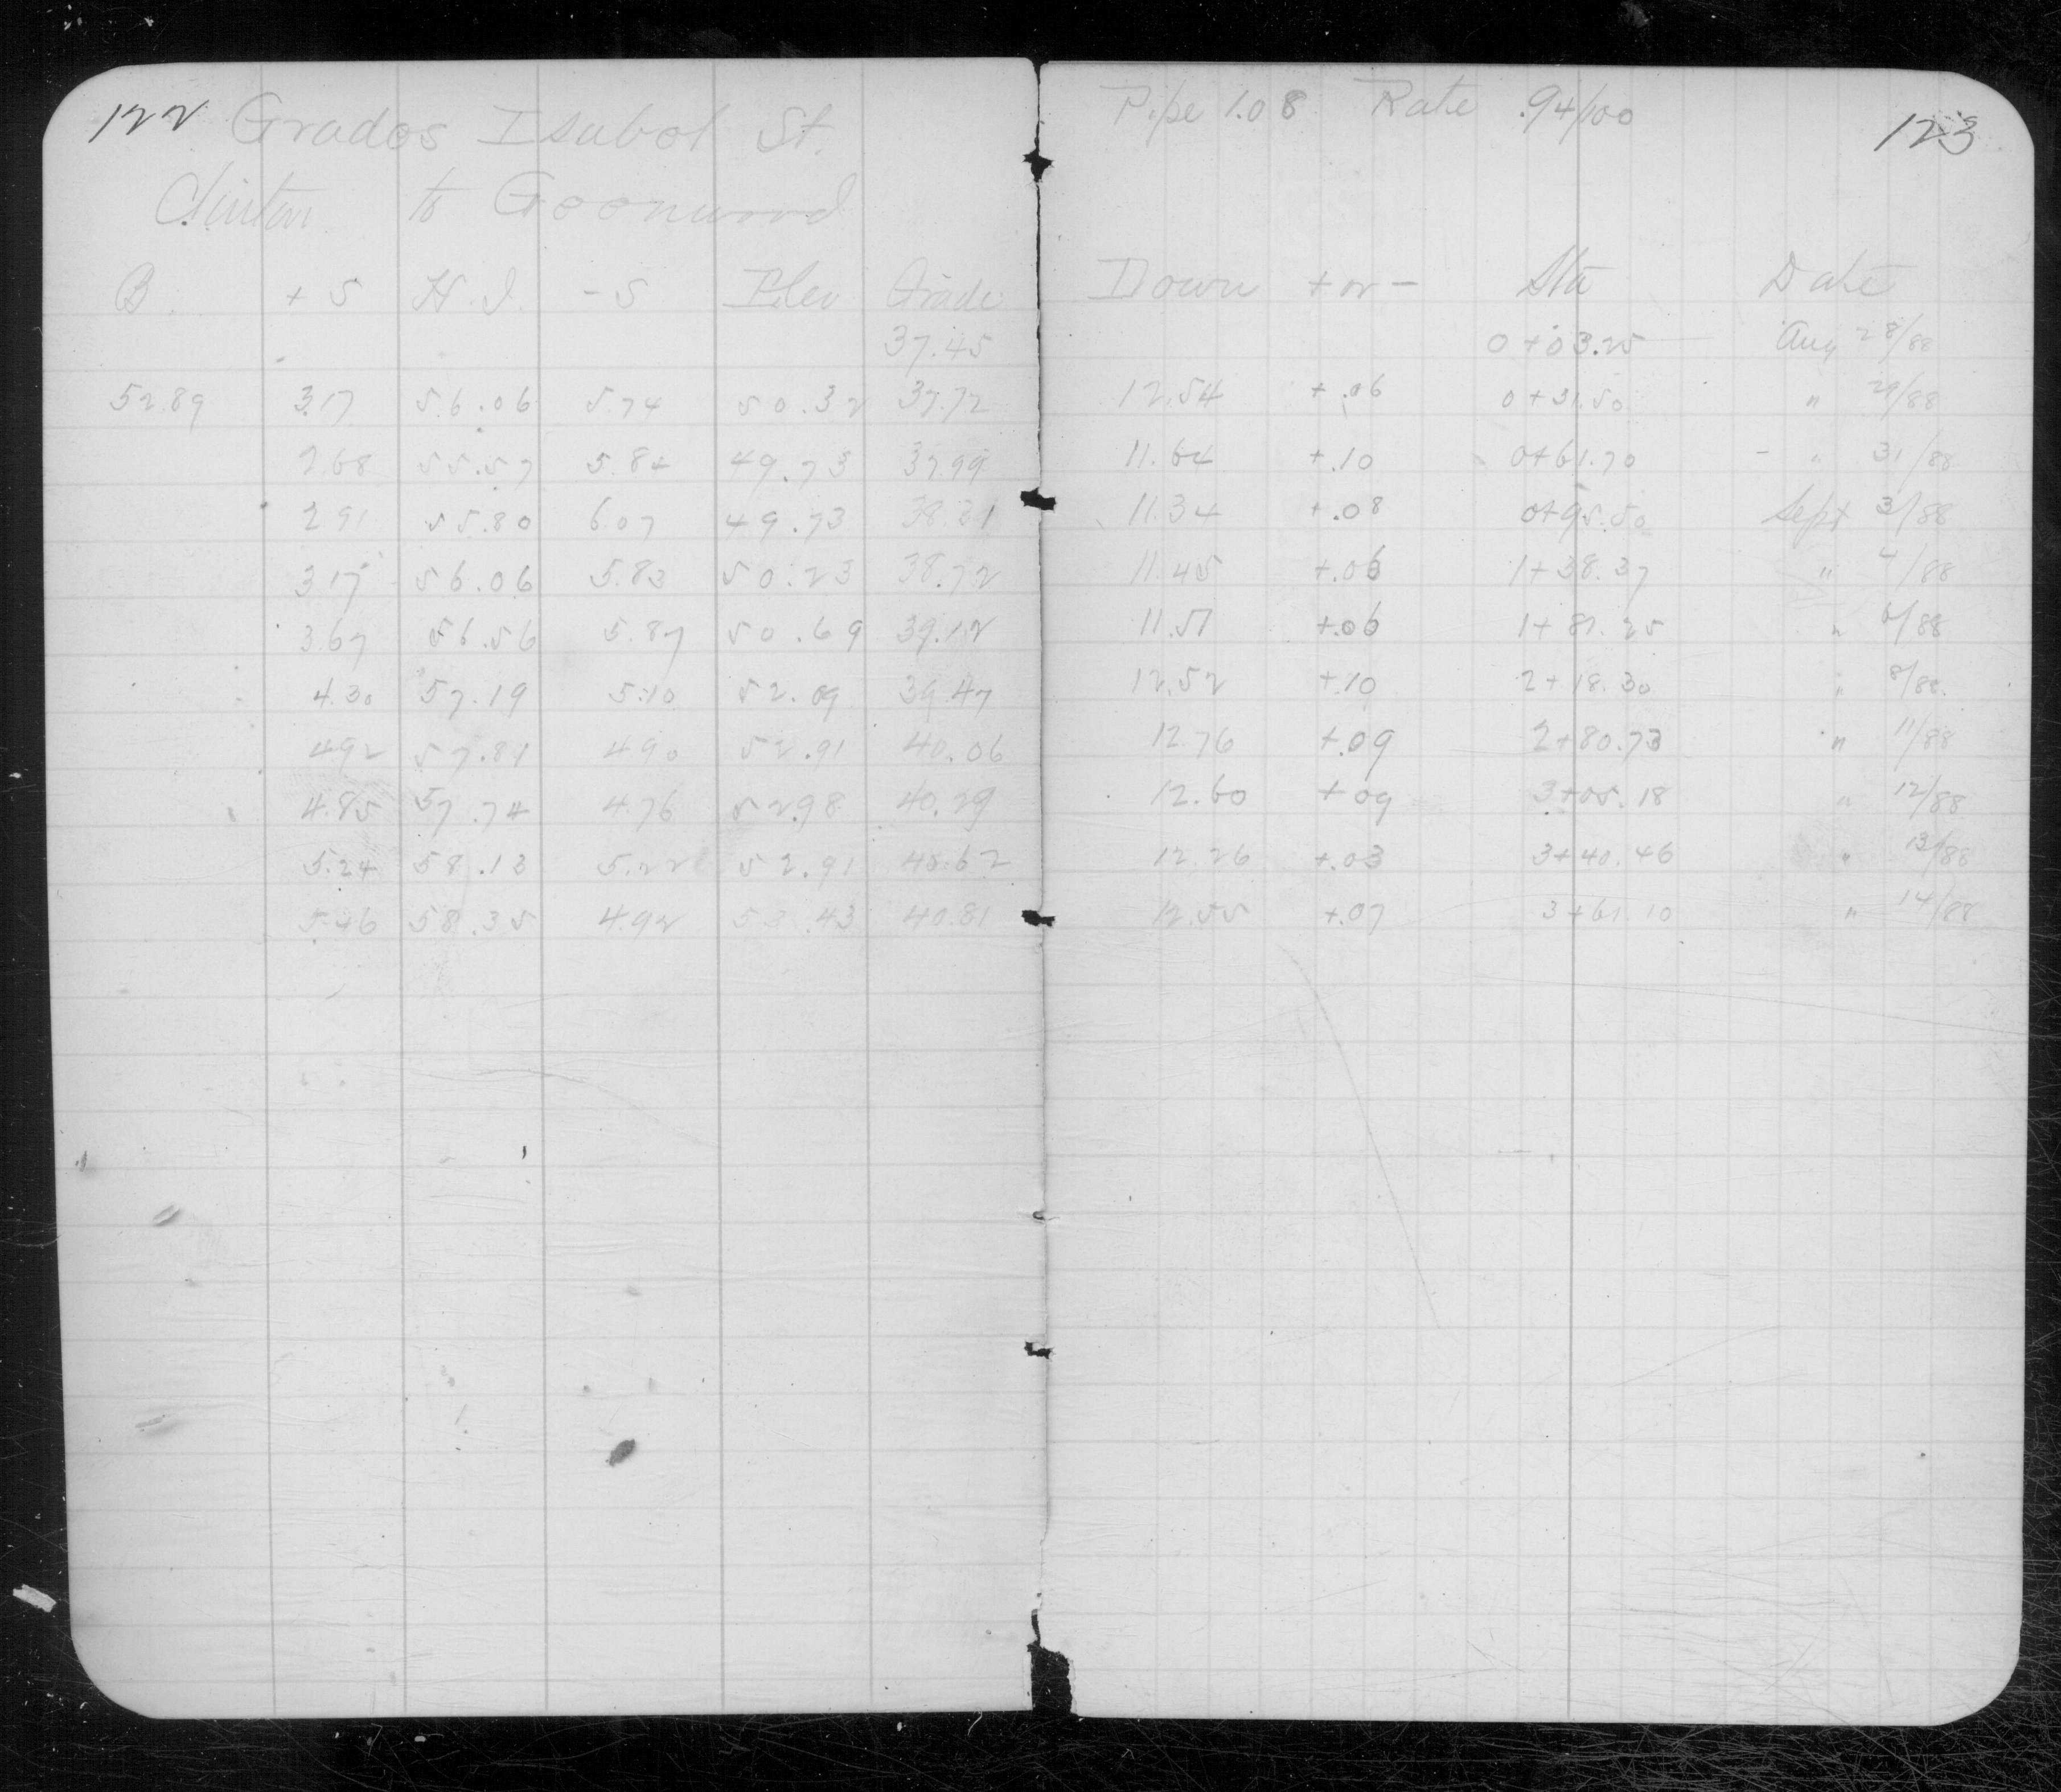 122 Grades Isabel St.
Clinton to Greenwood
B. + S H.I. - S Elev Grade
37.45
52.89 3.17 56.06 5.74 50.32 37.72
2.68 55.57 5.84 49.73 37.99
2.91 55.80 6.07 49.73 38.31
3.17 56.06 5.83 50.23 38.72
3.67 56.56 5.87 50.69 39.12
4.30 57.19 5.10 52.09 39.47
4.92 57.81 4.90 52.91 40.06
4.85 57.74 4.76 52.98 40.29
5.24 58.13 5.22 52.91 40.62
5.46 58.35 4.92 53.43 40.81
Pipe 1.08 Rate .94/100 123
Down + or - Sta Date
0+03.25 Aug 28/88
12.54 +.06 0+31.50 " 29/88
11.64 +.10 0+61.70 - " 31/88
11.34 +.08 0+95.50 Sept 3/88
11.45 +.06 1+38.37 " 4/88
11.51 +.06 1+81.25 " 6/88
12.52 +.10 2+18.30 " 8/88
12.76 +.09 2+80.73 " 11/88
12.60 +09 3+05.18 " 12/88
12.26 +.03 3+40.46 " 13/88
12.55 +.07 3+61.10 " 14/88